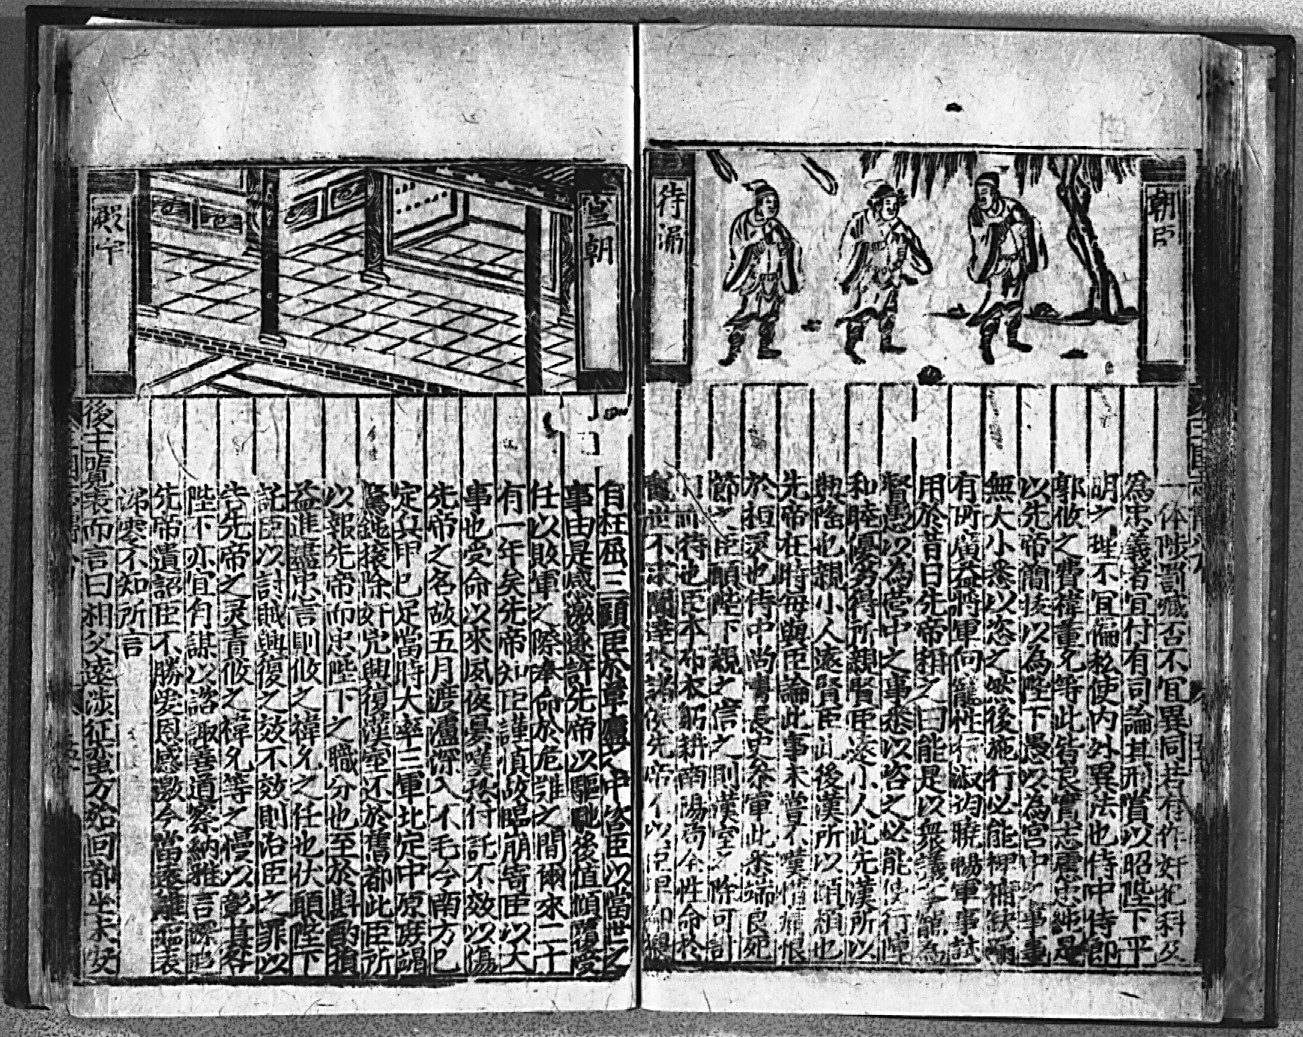 朝臣
待漏
一体陟罰臧否不宜異同若有作奸犯科及
為忠義者宜付有司論其刑賞以昭陛下平
明之理不宜偏私使内外異法也侍中侍郎
郭攸之費禕董允等此皆良實志慮忠純是
以先帝簡拔以為陛下愚以為宮中之事事
無大小悉以咨之然後施行以能裨補缺漏
有所廣益將軍向寵性行淑均曉暢軍事試
用於昔日先帝稱之曰能是以衆議舉寵為
督愚以為營中之事悉以咨之必能使行陣
和睦優劣得所親賢臣遠小人此先漢所以
興隆也親小人遠賢臣此後漢所以傾頹也
先帝在時每與臣論此事未嘗不嘆惜痛恨
於桓灵也侍中尚書長史參軍此悉端良死
節之臣願陛下親之信之則漢室之隆可計
日而待也臣本布衣躬耕南陽苟全性命於
亂世不求聞達於諸侯先帝不以臣卑鄙猥
皇朝
殿宇
自枉屈三顧臣於草廬之中咨臣以當世之
事由是感激遂許先帝以驅馳後值傾覆受
任以敗軍之際奉命於危難之間爾來二十
有一年矣先帝知臣謹慎故臨崩寄臣以大
事也受命以來夙夜憂嘆恐付託不效以傷
先帝之名故五月渡瀘深入不毛今南方已
定兵甲已足當時大率三軍北定中原庶竭
駑鈍攘除奸兇興復漢室还於舊都此臣所
以報先帝而忠陛下之職分也至於斟酌損
益進盡忠言則攸之禕允之任也伏願陛下
託臣以討賊興復之效不效則治臣之罪以
告先帝之灵責攸之禕允等之慢以彰其咎
陛下亦宜自謀以諮諏善道察納雅言深追
先帝遺詔臣不勝受恩感激今當遠離臨表
涕零不知所言
後主覽表而言曰相父遠涉征蛮方始回都坐未安